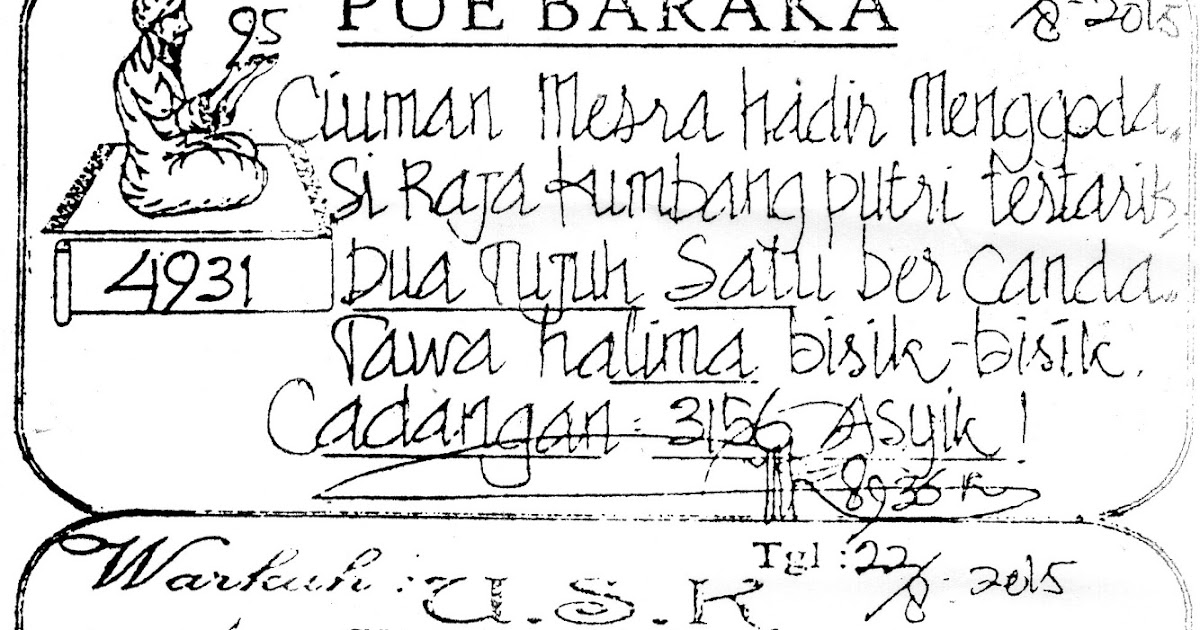 PUE BARAKA
8-2015
95
Ciuman Mesra hadir Menggoda.
Si Raja kumbang putri tertarik,
4931
Dua Tujuh Satu ber canda..
Tawa halima bisik-bisik.
Cadangan: 3156 Asyik!
Warkuh : U.S.K
Tgl : 22/8-2015